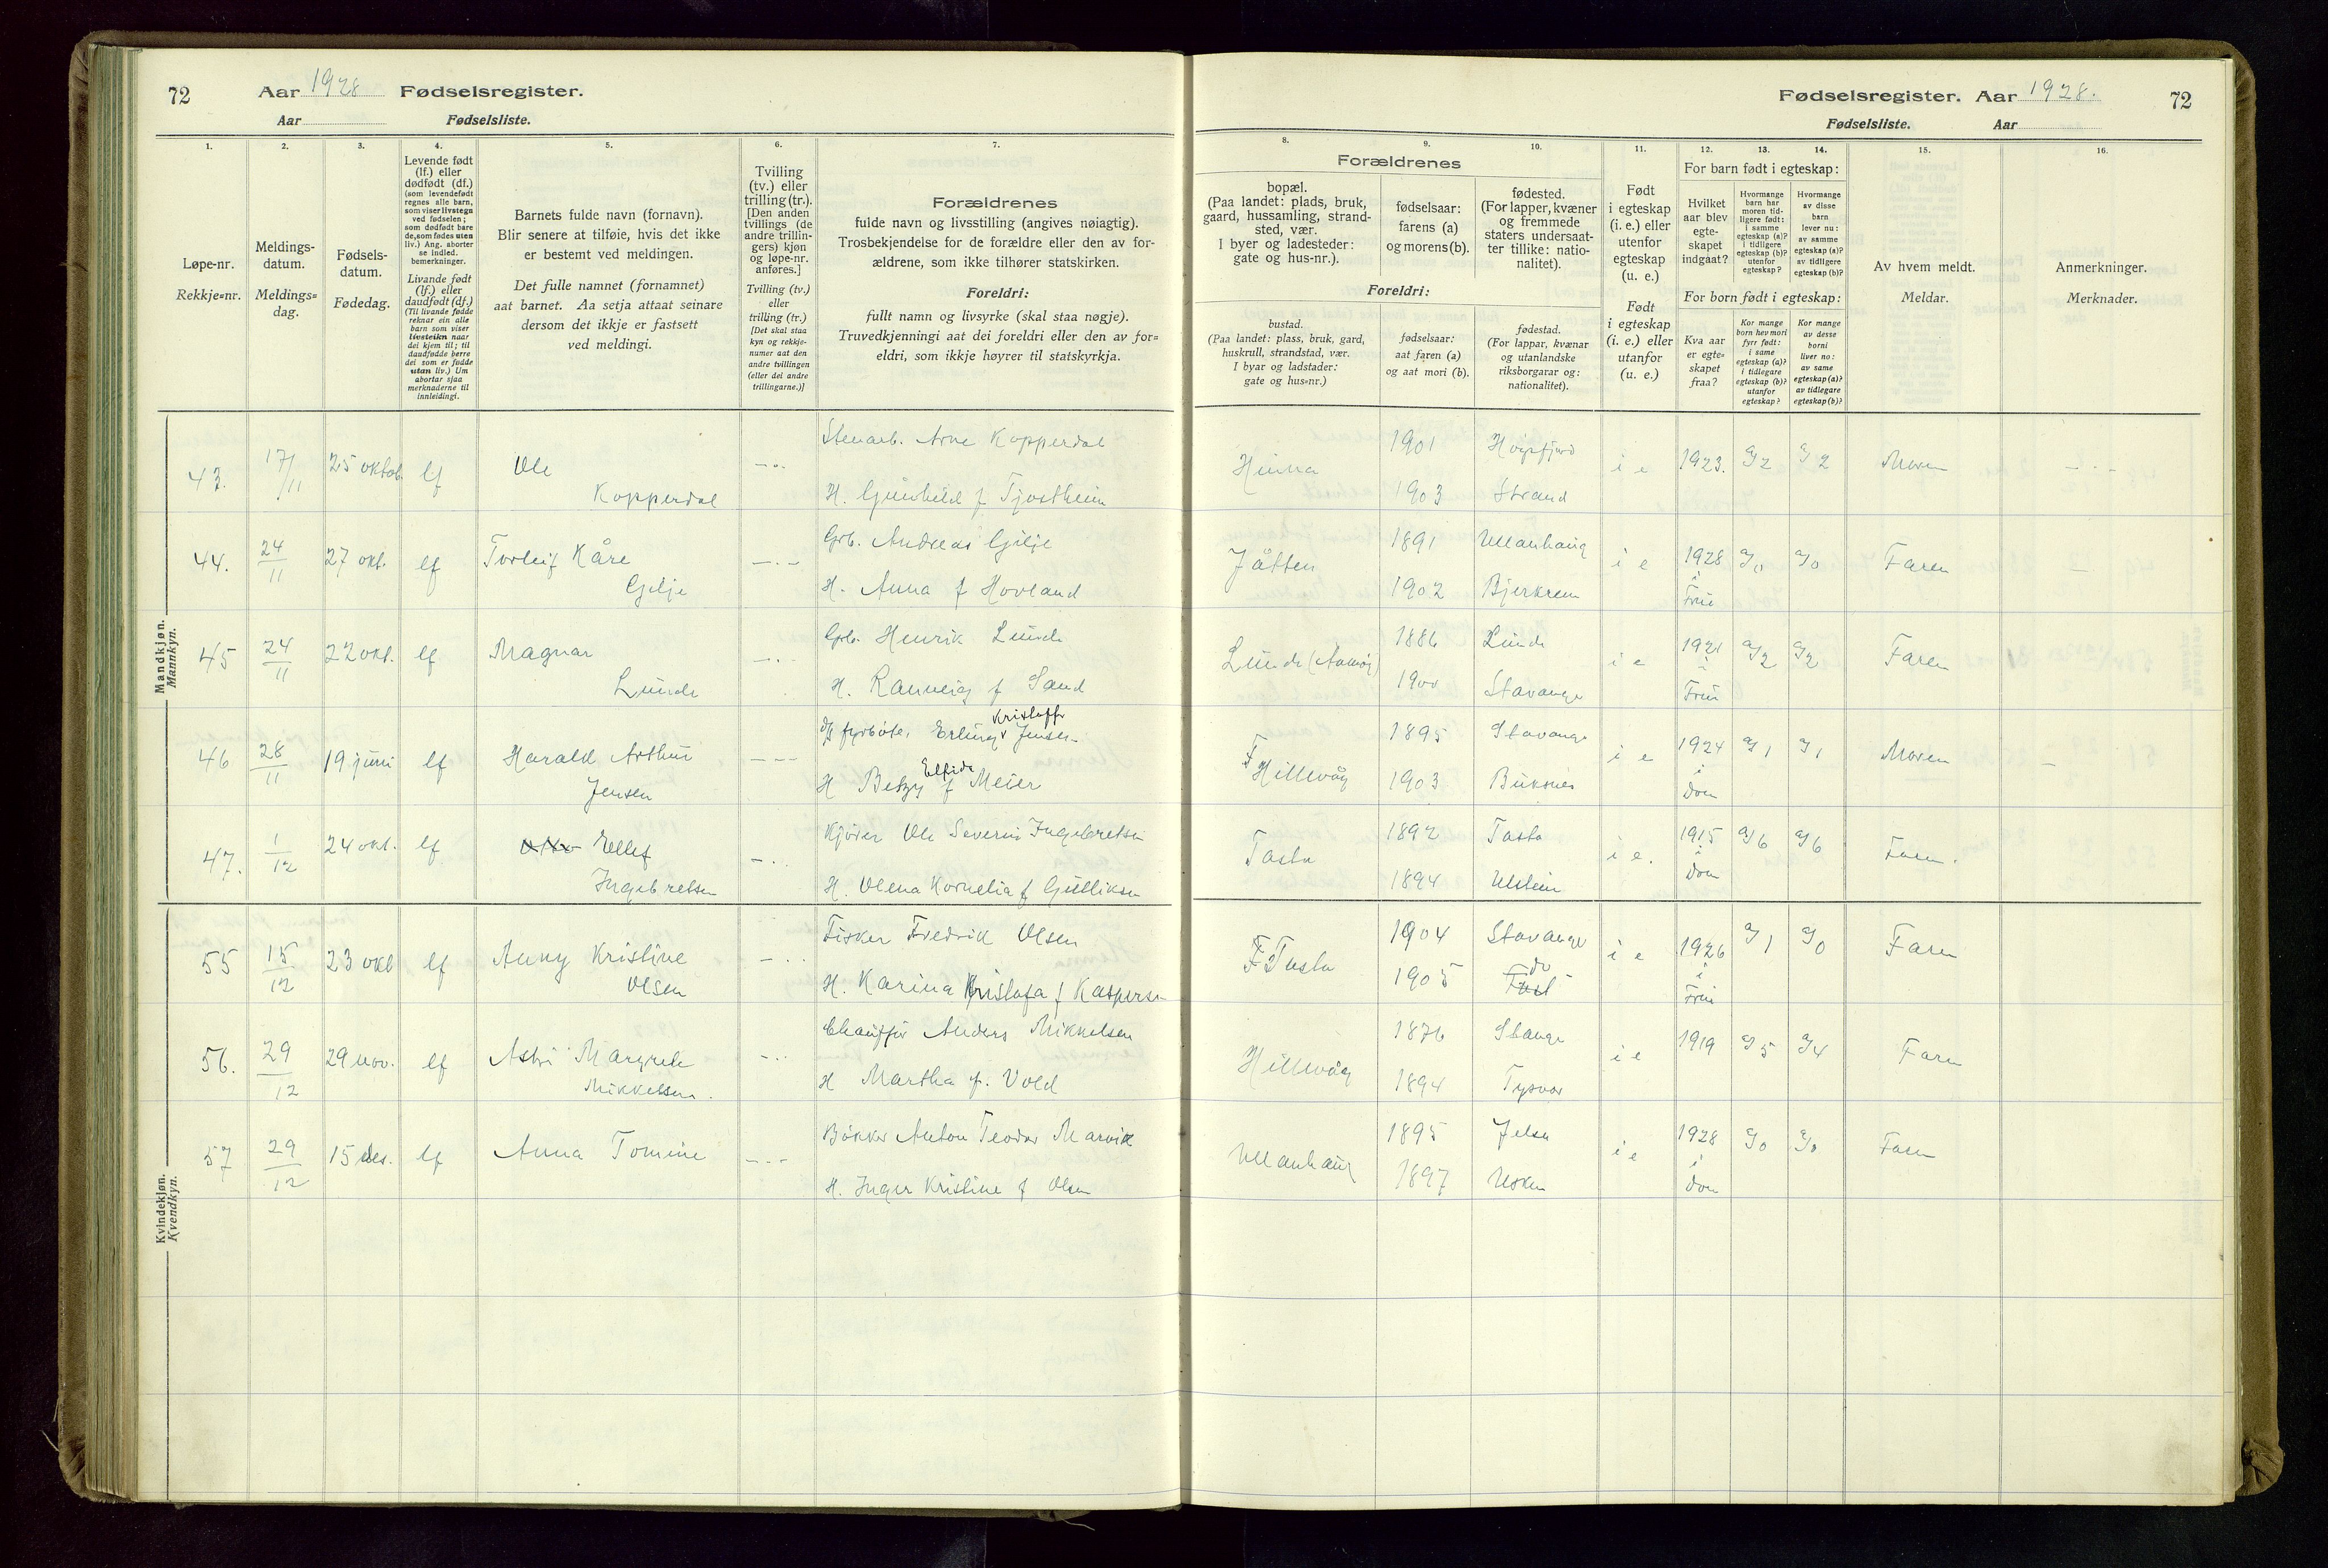 72 Aar 1928 Fødselsregister.
Aar Fødselsliste.
Fødselsregister. Aar 1928. 72
Fødselsliste. Aar
1. 2. 3. 4. 5. 6. 7.
Løpe-nr.
Rekkje=nr.
Meldings-
datum.
Meldings=
dag.
Fødsels-
datum.
Fødedag.
Levende født
(lf.) eller
dødfødt (df.)
(som levendefødt
regnes alle barn,
som viser livstegn
ved fødselen;
som dødfødt bare
de, som fødes uten
liv.) Ang. aborter
se indled.
bemerkninger.
Livande født
(lf.) eller
daudfødt (df.)
(Til livande fødde
reknar ein alle
barn som viser
livsteikn naar
dei kjem til; til
daudfødde berre
dei som er fødde
utan liv.) Um
abortar sjaa
merknaderne til
innleidingi.
Barnets fulde navn (fornavn).
Blir senere at tilføie, hvis det ikke
er bestemt ved meldingen.
Det fulle namnet (fornamnet)
aat barnet. Aa setja attaat seinare
dersom det ikkje er fastsett
ved meldingi.
Tvilling
(tv.) eller
trilling (tr.).
[Den anden
tvillings (de
andre trillin-
gers) kjøn
og løpe-nr.
anføres.]
Tvilling (tv.)
eller
trilling (tr.)
[Det skal staa
kyn og rekkje-
numer aat den
andre tvillingen
(eller dei andre
trillingarne.)]
Forældrenes
fulde navn og livsstilling (angives nøiagtig).
Trosbekjendelse for de forældre eller den av for-
ældrene, som ikke tilhører statskirken.
Foreldri:
fullt namn og livsyrke (skal staa nøgje).
Truvedkjenningi aat dei foreldri eller den av for=
eldri, som ikkje høyrer til statskyrkja.
8. 9. 10. 11. 12. 13. 14. 15. 16.
Forældrenes
bopæl.
(Paa landet: plads, bruk,
gaard, hussamling, strand-
sted, vær.
I byer og ladesteder:
gate og hus-nr.).
fødselsaar:
farens (a)
og morens (b).
fødested.
(For lapper, kvæner
og fremmede
staters undersaat-
ter tillike: natio-
nalitet).
Foreldri:
bustad.
(Paa landet: plass, bruk, gard,
huskrull, strandstad, vær.
I byar og ladstader:
gate og hus-nr.)
fødselsaar:
aat faren (a)
og aat mori (b).
fødestad.
(For lappar, kvænar
og utanlandske
riksborgarar og:
nationalitet).
Født
i egteskap
(i. e.) eller
utenfor
egteskap
(u. e.)
Født
i egteskap
(i. e.) eller
utanfor
(u. e.)
For barn født i egteskap:
Hvilket
aar blev
egte-
skapet
indgaat?
Hvormange
barn har
moren tid-
ligere født:
i samme
egteskap (a)?
i tidligere
egteskap (b)?
utenfor
egteskap?
Hvormange
av disse
barn
lever nu:
av samme
egteskap (a)?
av tidligere
egteskap (b)?
For born født i egteskap:
Kva aar
er egte=
skapet
fraa?
Kor mange
born hev mori
fyrr født:
i same
egteskap (a)?
i tidlegare
egteskap (b)?
utanfor
egteskap?
Kor mange
av desse
borni
liver no:
av same
egteskap (a)?
av tidlegare
egteskap (b)?
Av hvem meldt.
Meldar.
Anmerkninger.
Merknader.
Mandkjøn.
Mannkyn.
43. 17/11 25 oktob. lf Ole Kopperdal
Stenarb. Arne Kopperdal
H. Gunhild f Tjostheim
Hinna 1901 1903 Høgsfjord Strand i e 1923. a/2 a/2 Moren
44. 24/11 27 okt. lf Torleif Kåre Gilje
Grb. Andreas Gilje
H. Anna f Hovland
Jåtten 1891 1902 Ullanhaug Bjerkrem i e 1928 i Frue a/0 a/0 Faren
45 24/11 22 okt. lf Magnar Lunde
Grb. Henrik Lunde
H. Ranveig f Sand
Lunde 1886 1900 Lunde Stavanger i e 1921 i Frue a/2 a/2 Faren
46 28/11 19 juni lf Harald Arthur Jensen
fyrbøter Erling Kristoffer Jensen
H Betzy Elfida f Meier
F Hillevåg 1895 1903 Stavanger Buksnes i e 1924 i Dom a/1 a/1 Moren
47. 1/12 24 okt. lf Ellef Ingebretsen
Kjører Ole Severin Ingebretsen
H. Olena Kornelia f Gulliksen
Tasta 1892 1894 Tasta Utstein i e. 1915 i Dom a/6 a/6 Faren.
Kvindekjøn.
Kvendkyn.
55 15/12 23 okt lf Anny Kristine Olsen
Fisker Fredrik Olsen
H. Karina Kristofa f Kaspersen
F Tasta 1904 1905 Stavanger do i e 1926 i Frue a/1 a/0 Faren
56. 29/12 29 nov. lf Astri Margrete Mikkelsen.
Chauffør Anders Mikkelsen
H Martha f. Vold
Hillevåg 1876 1894 Stavanger Tysvær i e 1919 a/5 a/4 Faren
57 29/12 15 des. lf Anna Tomine
Bøkker Anton Teodor Marvik
H. Inger Kristine f Olsen
Ullanhaug 1895 1897 Jelsa Usken i e 1928 i Dom a/0 a/0 Faren